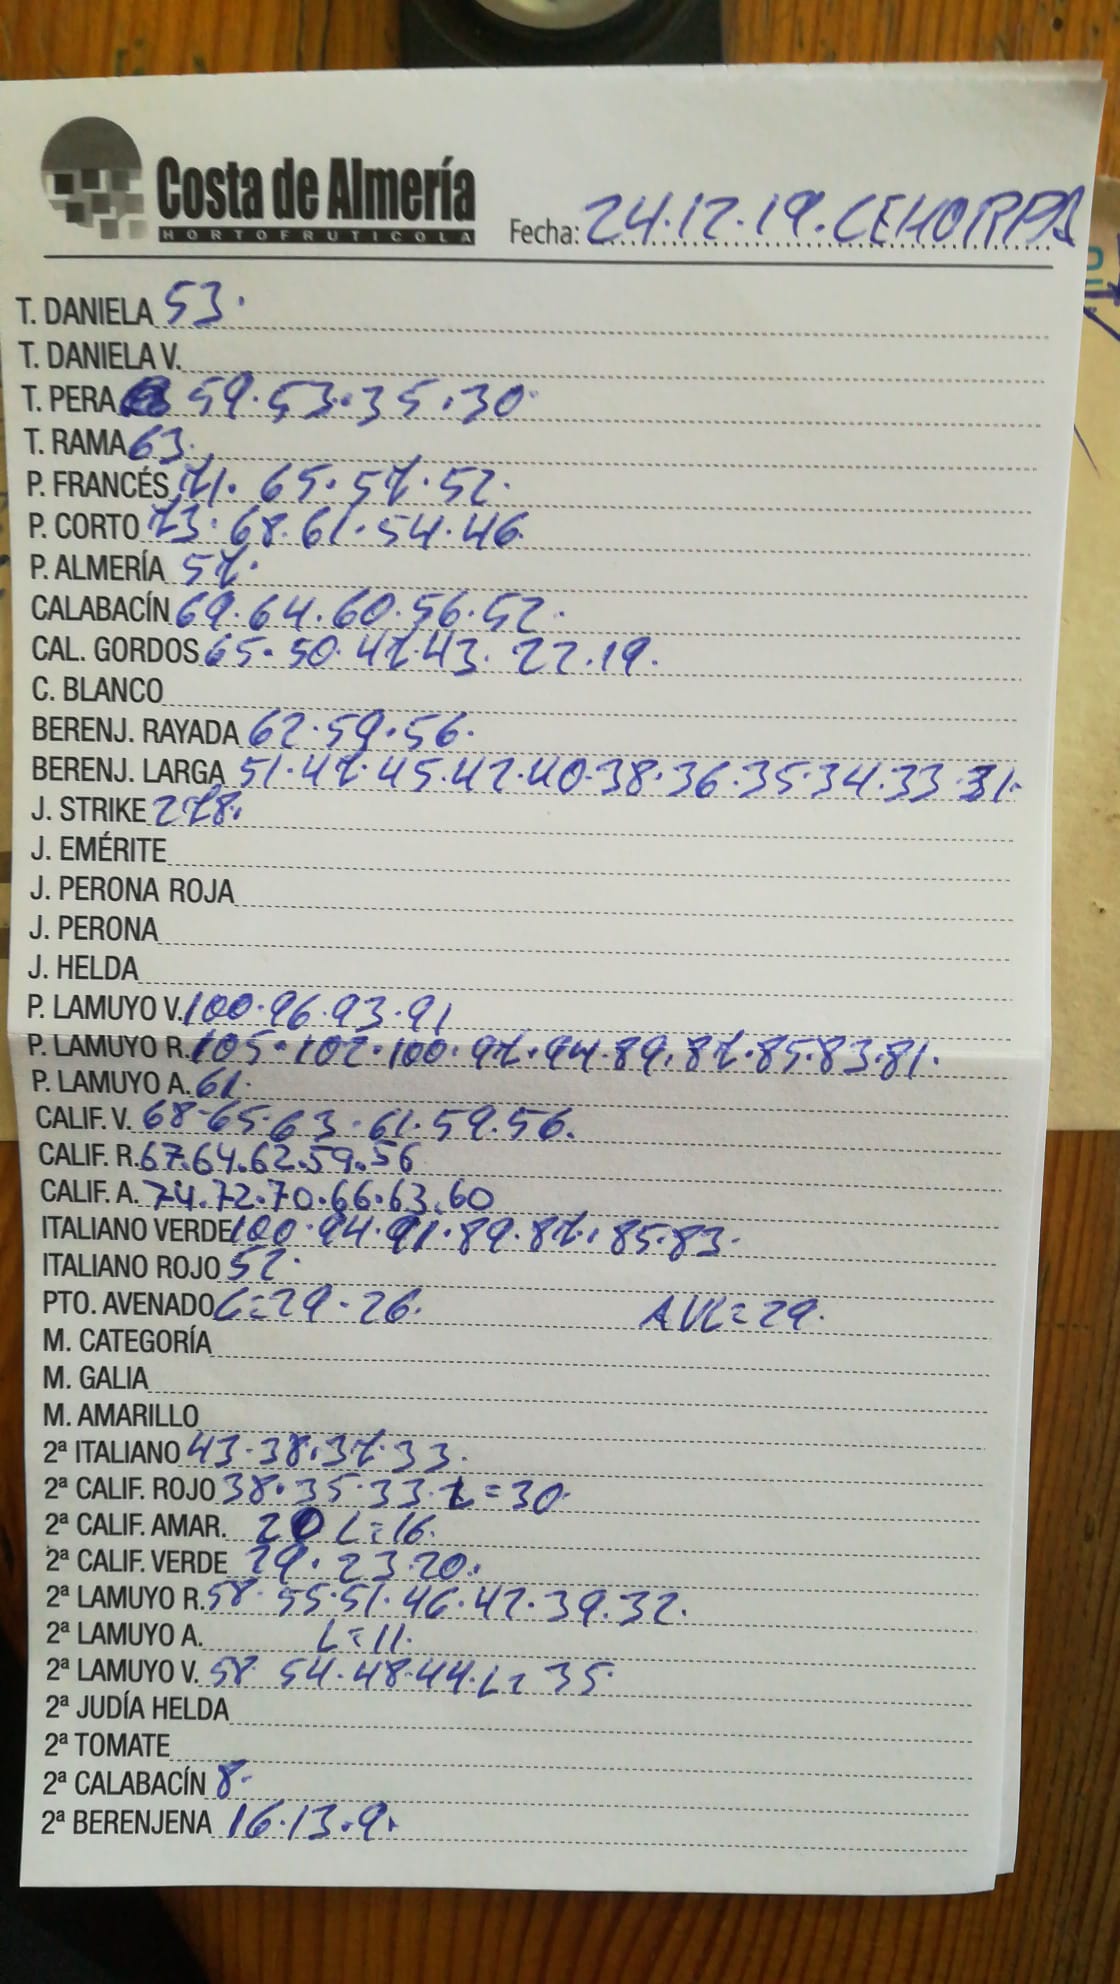 Costa de Almería
HORTOFRUTICOLA
Fecha: 24.12.19. CEHORPA
T. DANIELA 53.
T. DANIELA V.
T. PERA 59.53.35.30.
T. RAMA 63.
P. FRANCÉS 71. 65.57.52.
P. CORTO 73.68.61.54.46.
P. ALMERÍA 57.
CALABACÍN 69.64.60.56.52.
CAL. GORDOS 65.50.47.43. 22.19.
C. BLANCO
BERENJ. RAYADA 62.59.56.
BERENJ. LARGA 51.47.45.42.40.38.36.35.34.33.31.
J. STRIKE 278.
J. EMÉRITE
J. PERONA ROJA
J. PERONA
J. HELDA
P. LAMUYO V. 100.96.93.91
P. LAMUYO R. 105.102.100.97.94.89.87.85.83.81.
P. LAMUYO A. 61.
CALIF. V. 68-65.63.61.59.56.
CALIF. R. 67.64.62.59.56
CALIF. A. 74.72.70.66.63.60
ITALIANO VERDE 100.94.91.89.87.85.83.
ITALIANO ROJO 52.
PTO. AVENADO L=29-26. AVL=29.
M. CATEGORÍA
M. GALIA
M. AMARILLO
2ª ITALIANO 43.38.37.33.
2ª CALIF. ROJO 38.35.33. L=30.
2ª CALIF. AMAR. 20 L=16.
2ª CALIF. VERDE 29.23.20.
2ª LAMUYO R. 58.55.51.46.42.39.32.
2ª LAMUYO A. L=11.
2ª LAMUYO V. 58 54.48.44.L=35.
2ª JUDÍA HELDA
2ª TOMATE
2ª CALABACÍN 8.
2ª BERENJENA 16.13.9.